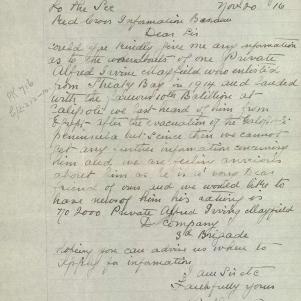 To the Sec Nov 20 /16
Red Cross Information Bureau
Dear Sir
Could you kindly give me any information
as to the whereabouts of one Private
Alfred Irvine Mayfield who enlisted
from Bay in 1914 and landed
with the famous 10th Batillion at
Galipole we last heard of him from
Egypt after the evacuation of the
peninsula but since then we cannot
get any further information concerning
him and we are feeling anxious
about him as he is a very Dear
friend of ours and we would like to
have news of him his is
No 2000 Private Alfred Irving Mayfield
D Company
3rd Brigade
hoping you can advise us where to
apply for information
I am Sir etc
Faithfully yours